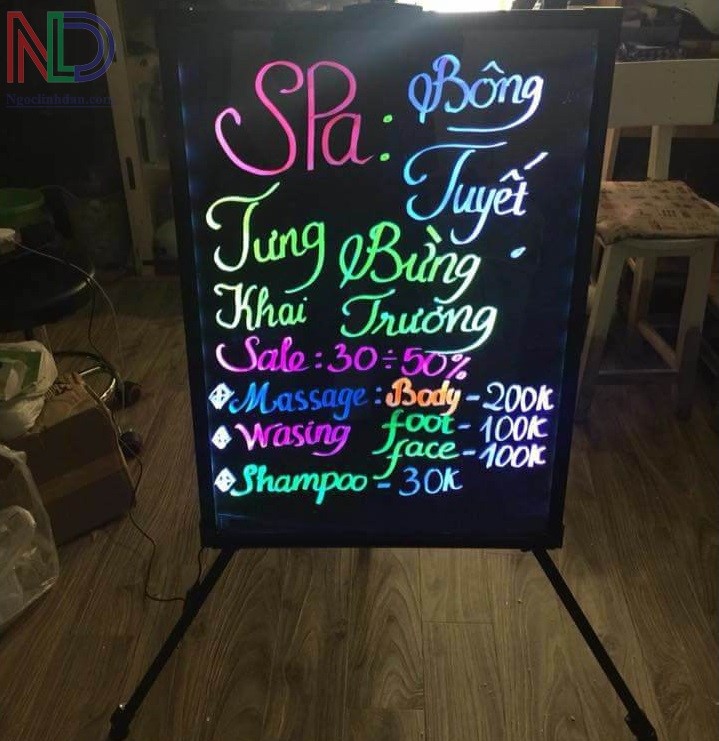 NLD
Ngoclinhdan.com
Spa: Bông
Tuyết
Tưng Bừng
Khai Trường
Sale: 30÷50%
Massage: Body - 200K
Wasing foot - 100K
face - 100K
Shampoo - 30K